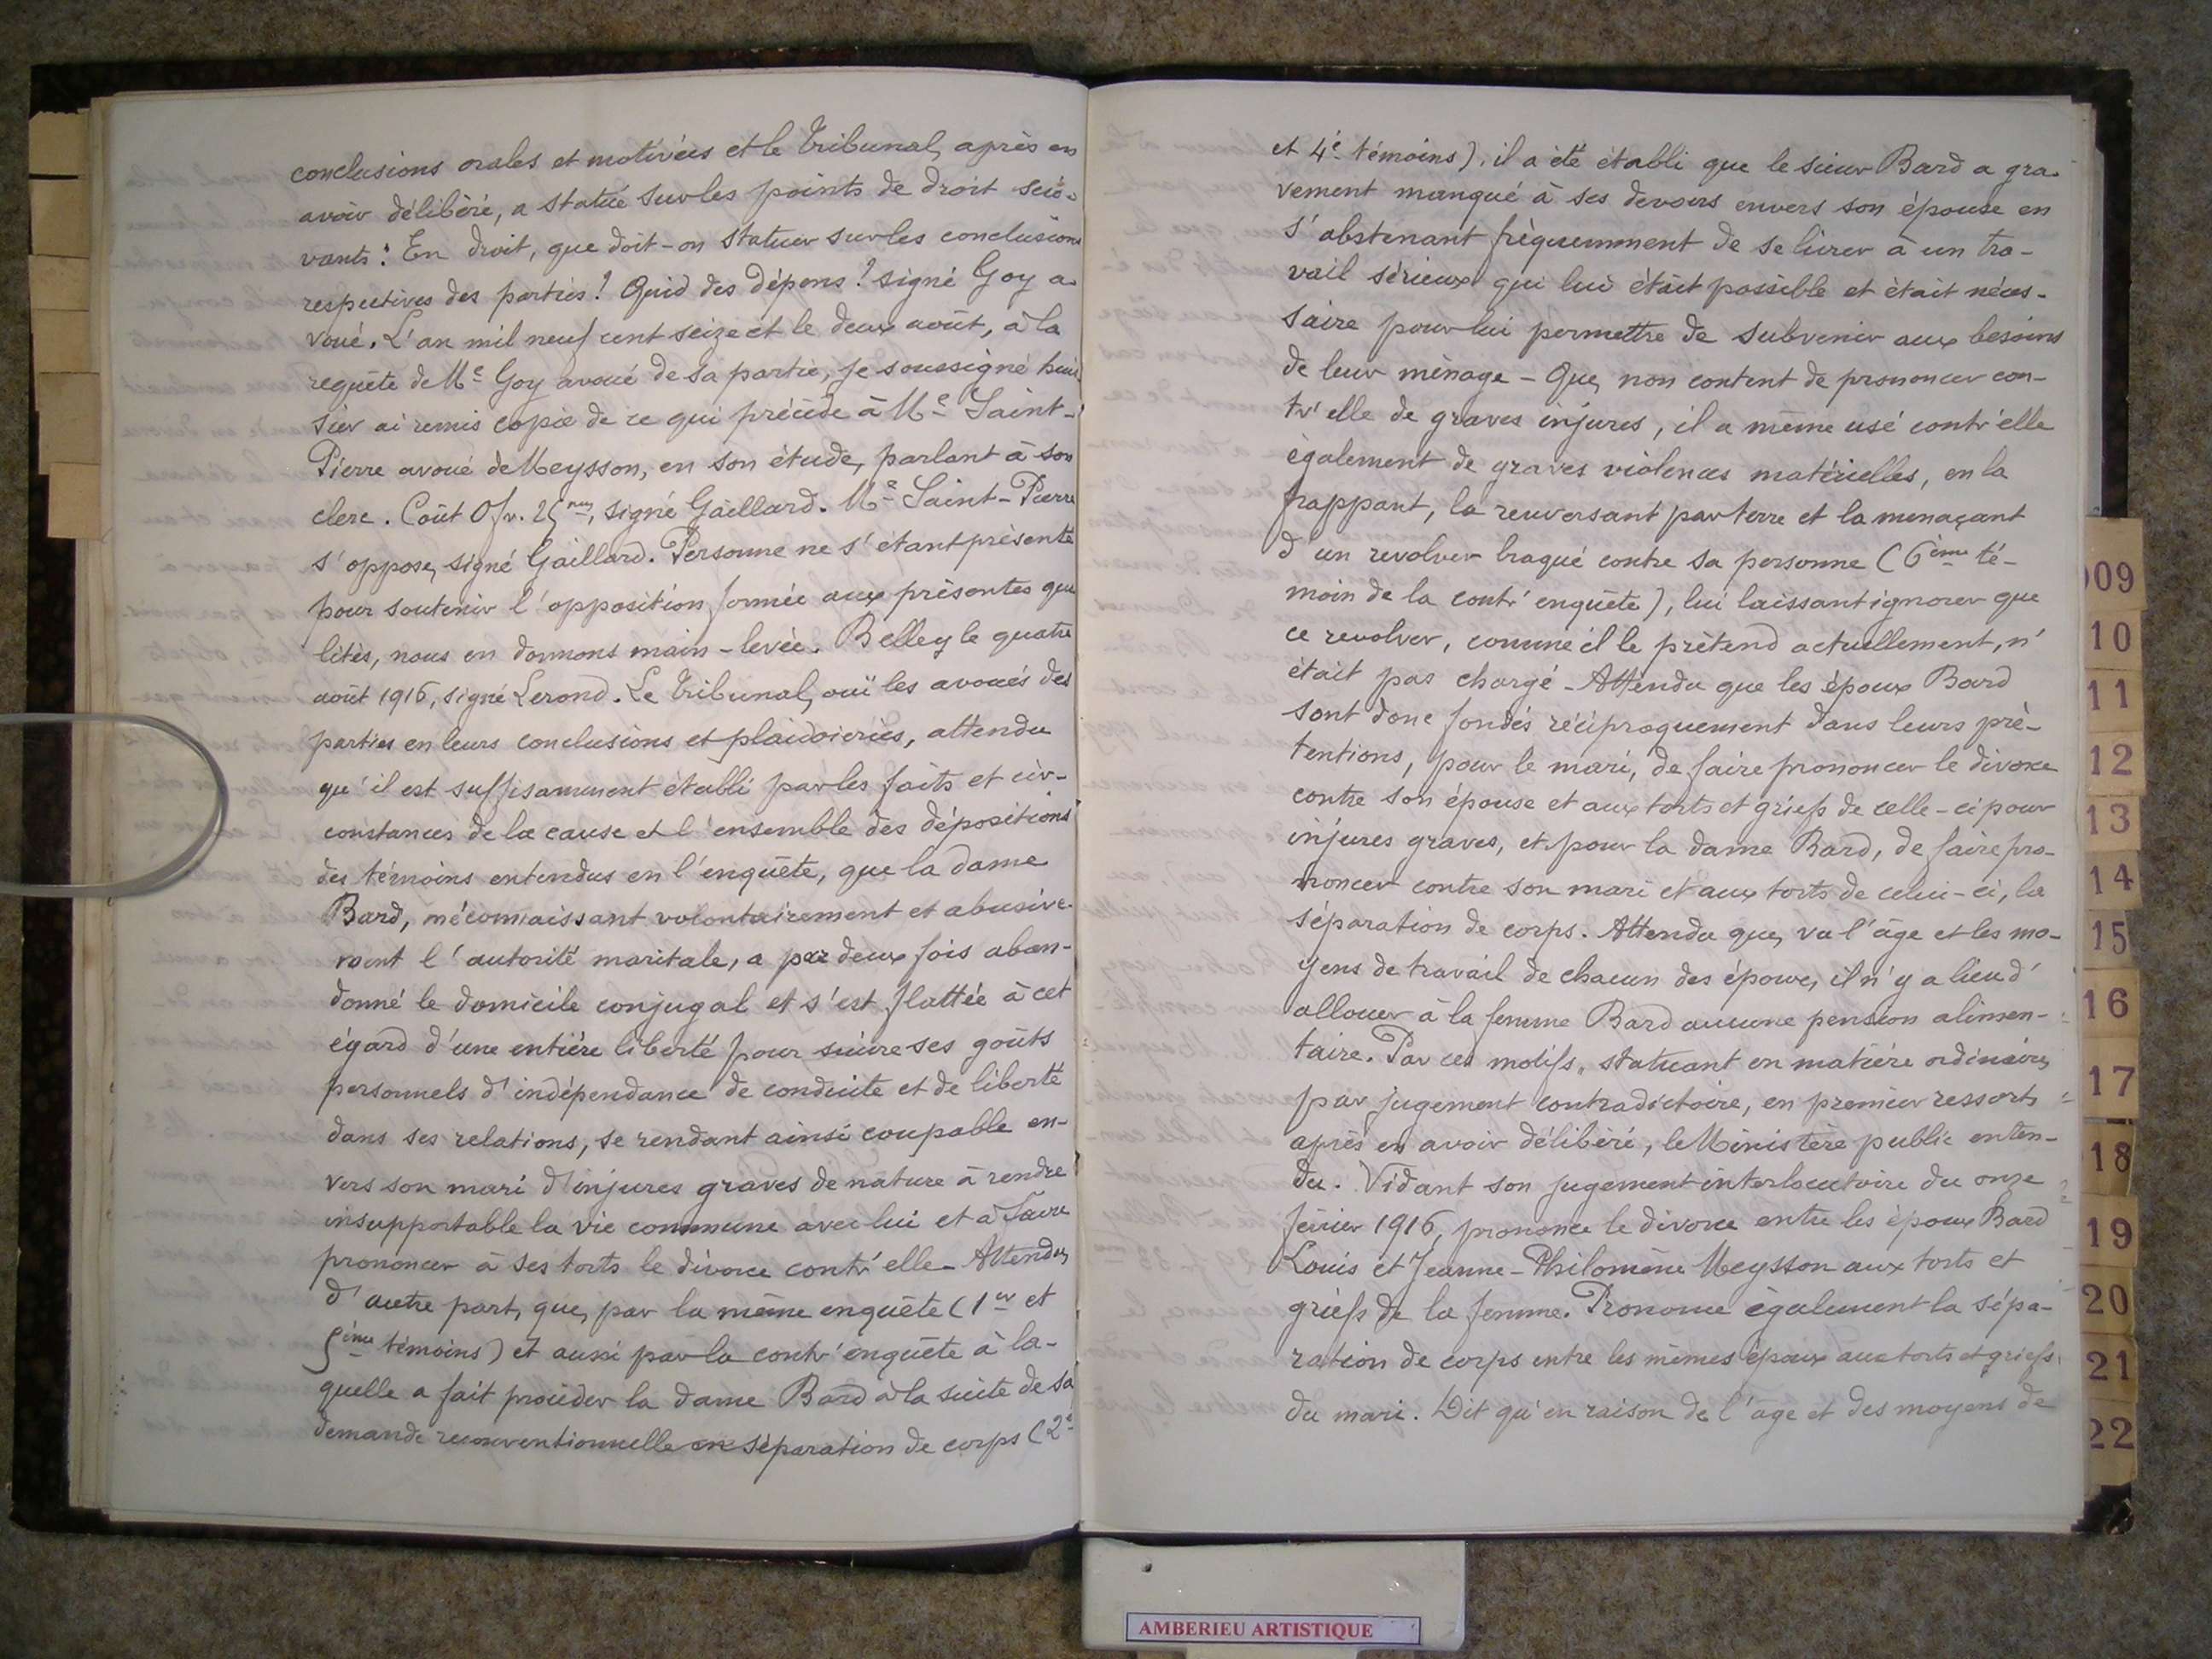 conclusions orales et motivées et le Tribunal, après en
avoir délibéré, a statué sur les points de droit sui-
vants : En droit, que doit-on statuer sur les conclusions
respectives des parties ? Quid des dépens ? signé Goy a-
voué. L'an mil neuf cent seize et le deux août, à la
requête de Me Goy avoué de sa partie, je soussigné huis-
sier ai remis copie de ce qui précède à Me Saint-
Pierre avoué de Meysson, en son étude, parlant à son
clerc. Coût 0 fr. 25 mes, signé Gaillard. Me Saint-Pierre
s'oppose, signé Gaillard. Personne ne s'étant présenté
pour soutenir l'opposition formée aux présentes qua
lités, nous en donnons main-levée. Belley le quatre
août 1916, signé Lerond. Le Tribunal, ouï les avoués des
parties en leurs conclusions et plaidoieries, attendu
qu'il est suffisamment établi par les faits et cir-
constances de la cause et l'ensemble des dépositions
des témoins entendus en l'enquête, que la dame
Bard, méconnaissant volontairement et abusive-
ment l'autorité maritale, a par deux fois aban-
donné le domicile conjugal et s'est flattée à cet
égard d'une entière liberté pour suivre ses goûts
personnels d'indépendance de conduite et de liberté
dans ses relations, se rendant ainsi coupable en-
vers son mari d'injures graves de nature à rendre
insupportable la vie commune avec lui et à faire
prononcer à ses torts le divorce contr'elle - Attendu,
d'autre part, que, par la même enquête (1er et
5ème témoins) et aussi par la contr'enquête à la-
quelle a fait procéder la dame Bard à la suite de sa
demande reconventionnelle en séparation de corps (2e
et 4e témoins), il a été établi que le sieur Bard a gra-
vement manqué à ses devoirs envers son épouse en
s'abstenant fréquemment de se livrer à un tra-
vail sérieux qui lui était possible et était néces-
saire pour lui permettre de subvenir aux besoins
de leur ménage - Que, non content de prononcer con-
tr'elle de graves injures, il a même usé contr'elle
également de graves violences matérielles, en la
frappant, la renversant par terre et la menaçant
d'un revolver braqué contre sa personne (6ème té-
moin de la contr'enquête), lui laissant ignorer que
ce revolver, comme il le prétend actuellement, n'
était pas chargé - Attendu que les époux Bard
sont donc fondés réciproquement dans leurs pré-
tentions, pour le mari, de faire prononcer le divorce
contre son épouse et aux torts et griefs de celle-ci pour
injures graves, et pour la dame Bard, de faire pro-
noncer contre son mari et aux torts de celui-ci, la
séparation de corps. Attendu que, vu l'âge et les mo-
yens de travail de chacun des époux, il n'y a lieu d'
allouer à la femme Bard aucune pension alimen-
taire. Par ces motifs, statuant en matière ordinaire,
par jugement contradictoire, en premier ressort,
après en avoir délibéré, le Ministère public enten-
du. Vidant son jugement interlocutoire du onze
février 1916, prononce le divorce entre les époux Bard
Louis et Jeanne-Philomène Meysson aux torts et
griefs de la femme. Prononce également la sépa-
ration de corps entre les mêmes époux aux torts et griefs
du mari. Dit qu'en raison de l'âge et des moyens de
09
10
11
12
13
14
15
16
17
18
19
20
21
22
AMBERIEU ARTISTIQUE